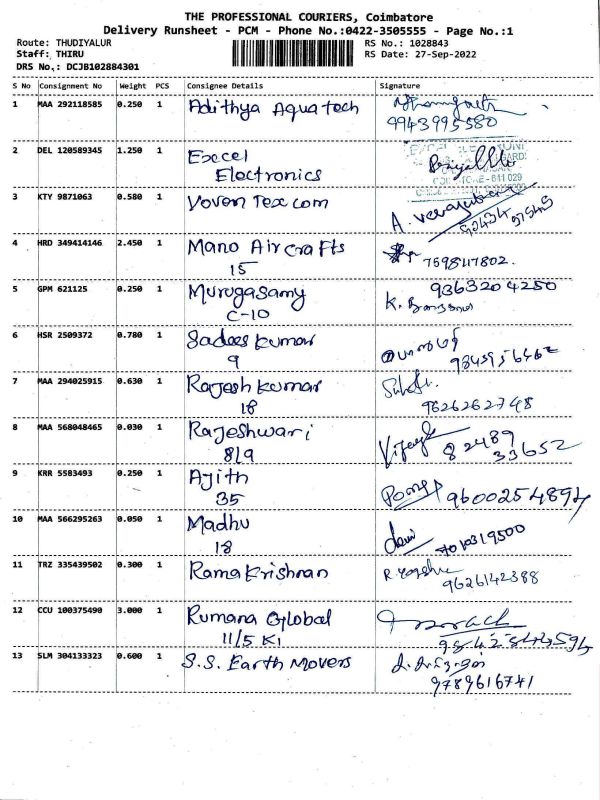 THE PROFESSIONAL COURIERS, Coimbatore
Delivery Runsheet - PCM - Phone No.:0422-3505555 - Page No.:1
Route: THUDIYALUR RS No.: 1028843
Staff: THIRU RS Date: 27-Sep-2022
DRS No.: DCJB102884301
S No Consignment No Weight PCS Consignee Details Signature
1 MAA 292118585 0.250 1 Adithya Aquatech
9943995580
2 DEL 120589345 1.250 1 Excel
Electronics
641 029
3 KTY 9871063 0.580 1 Voven Tex com
4 HRD 349414146 2.450 1 Mano Aircrafts
15 7598147802.
5 GPM 621125 0.250 1 Murugasamy 9363204250
C-10 K.
6 HSR 2509372 0.780 1 Sadees kumar
9
7 MAA 294025915 0.630 1 Rajesh kumar
18 9626262748
8 MAA 568048465 0.030 1 Rajeshwari 82489
8/9 33652
9 KRR 5583493 0.250 1 Ajith
35 9600254894
10 MAA 566295263 0.050 1 Madhu
18
11 TRZ 335439502 0.300 1 Rama Krishnan R.
9626142388
12 CCU 100375490 3.000 1 Rumana Global
11/5 K1 9842844594
13 SLM 304133323 0.600 1 S.S. Earth Movers
9789616741